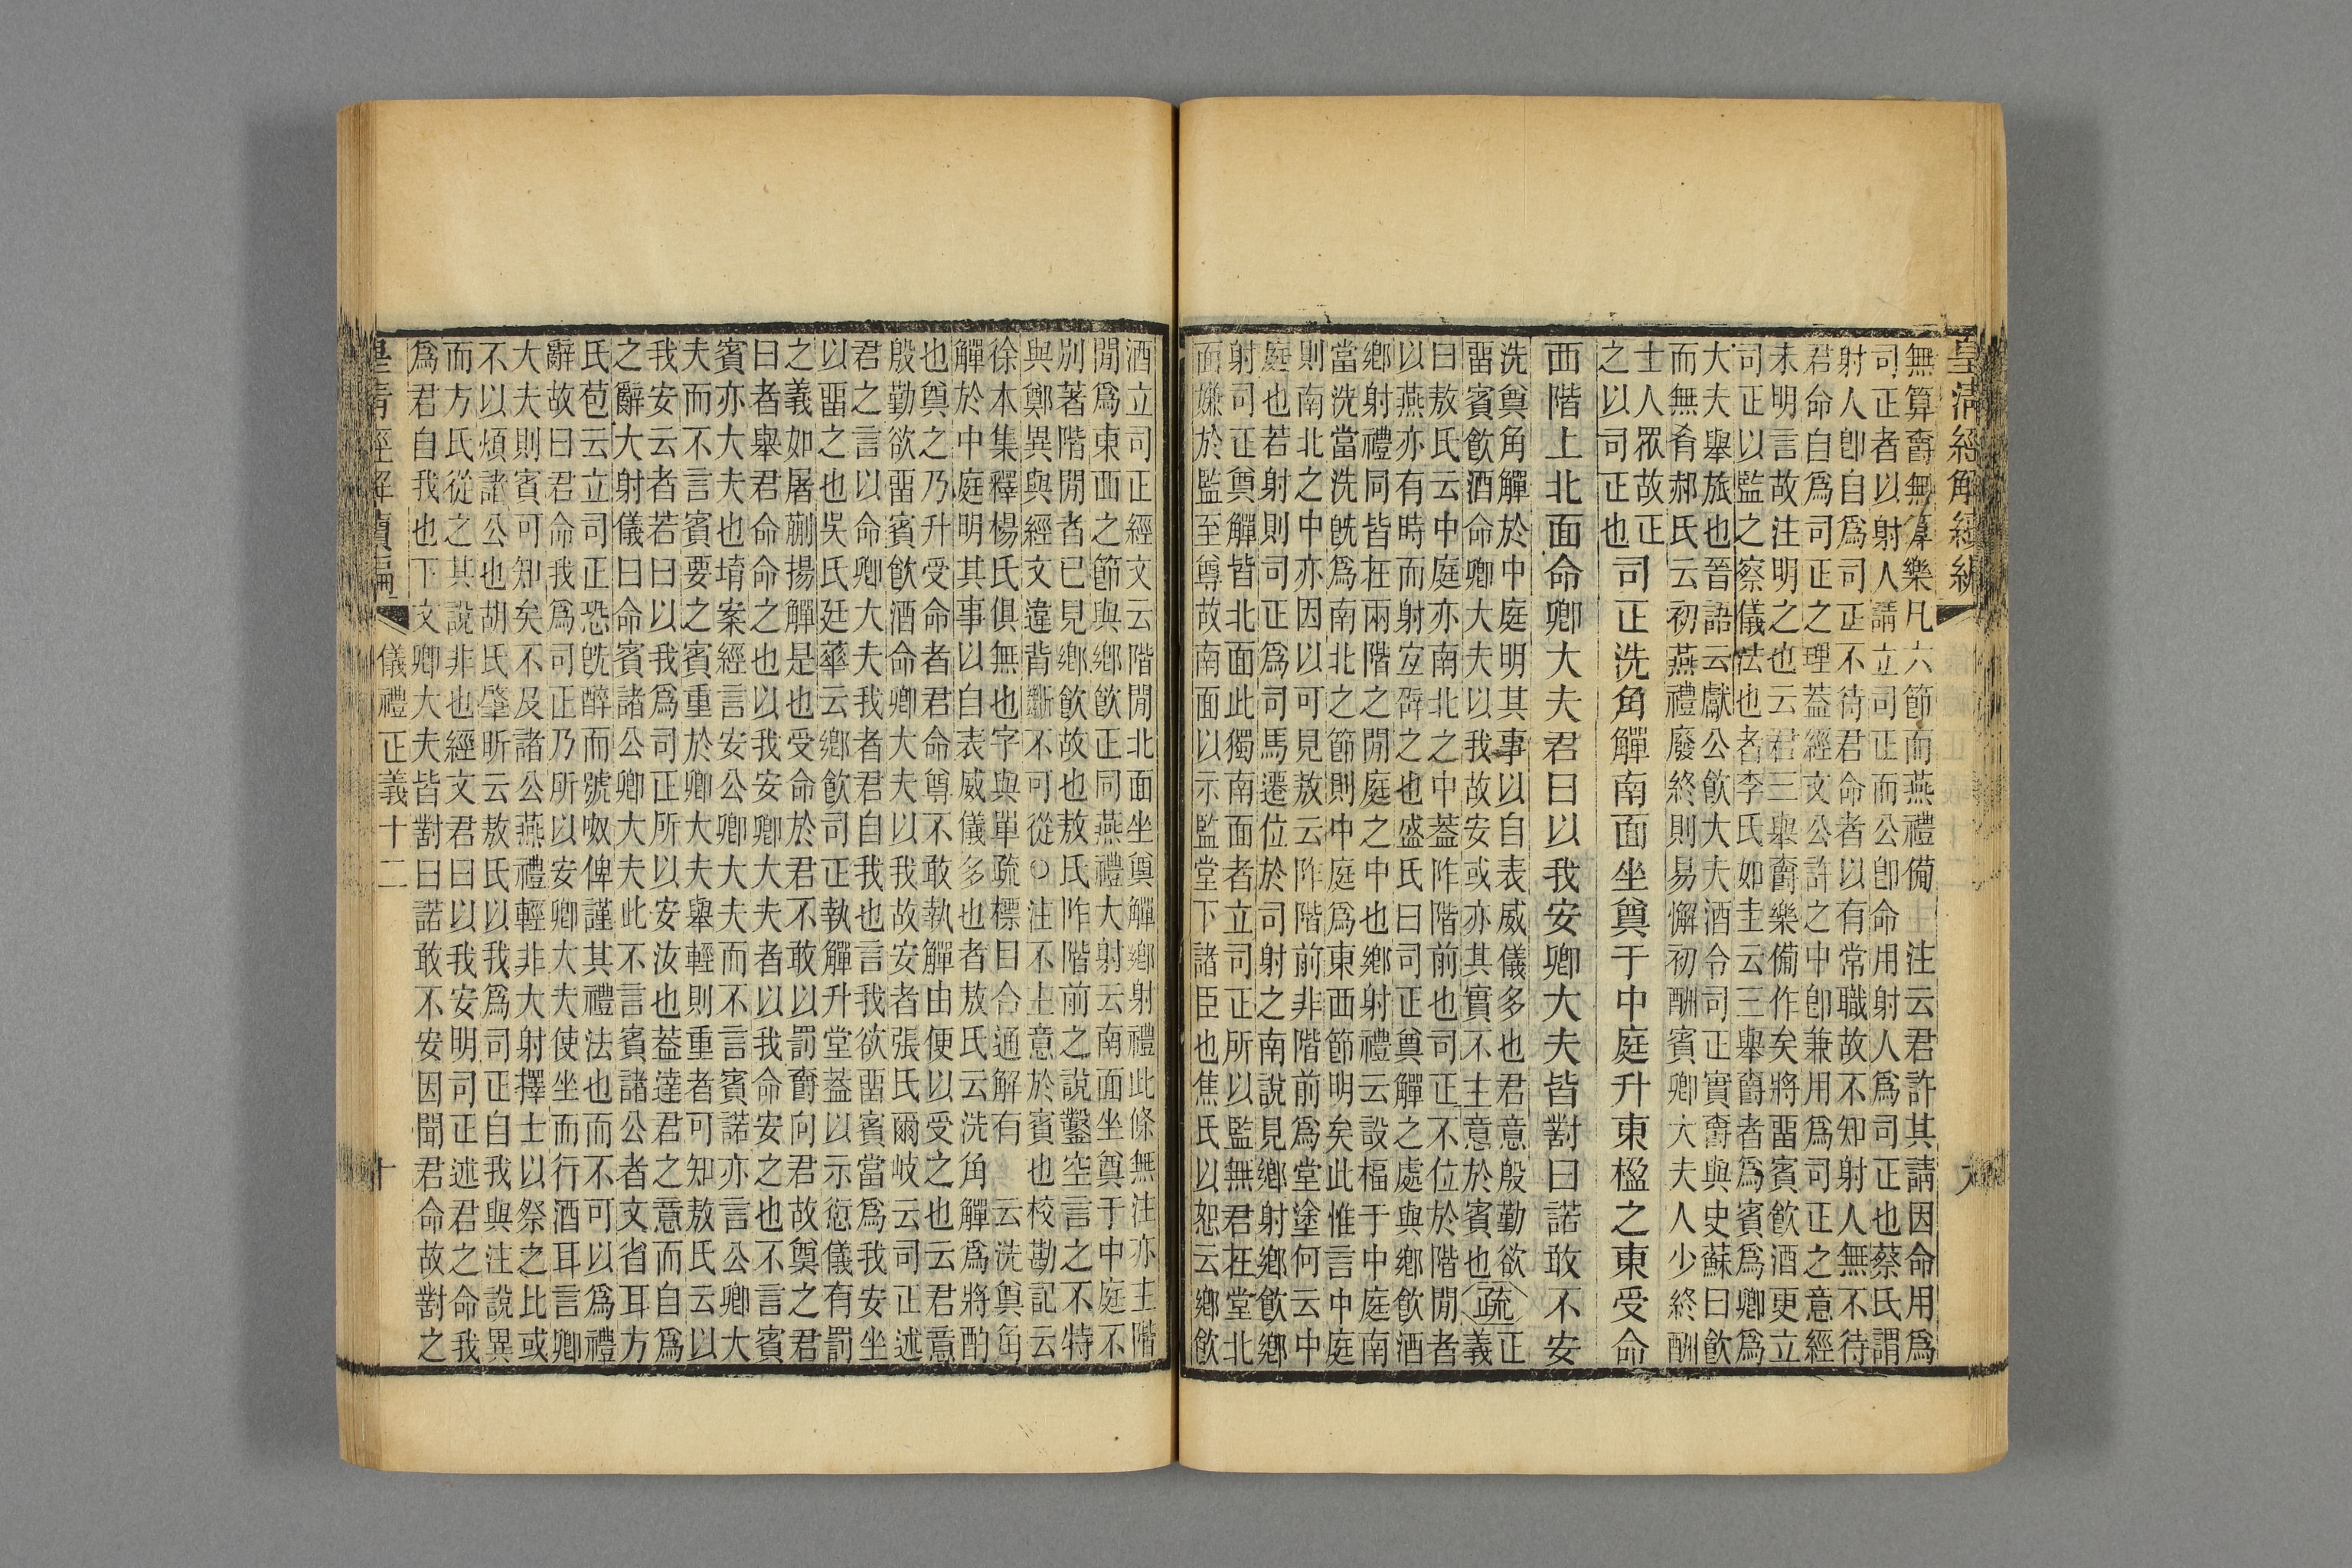 皇清經解續編
無算爵無算樂凡六節而燕禮備　注云君許其請因命用爲
司正者以射人請立司正而公卽命用射人爲司正也蔡氏謂
射人卽自爲司正不待君命者以有常職故不知射人無不待
君命自爲司正之理葢經文公許之中卽兼用爲司正之意經
未明言故注明之也云君三舉爵樂備作矣將畱賓飮酒更立
司正以監之察儀法也者李氏如圭云三舉爵者爲賓爲卿爲
大夫舉旅也晉語云獻公飮大夫酒令司正實爵與史蘇曰飮
而無肴郝氏云初燕禮廢終則易懈初酬賓卿大夫人少終酬
士人眾故正
之以司正也
司正洗角觶南面坐奠于中庭升東楹之東受命
西階上北面命卿大夫君曰以我安卿大夫皆對曰諾敢不安
洗奠角觶於中庭明其事以自表威儀多也君意殷勤欲
畱賓飮酒命卿大夫以我故安或亦其實不主意於賓也疏正義
曰敖氏云中庭亦南北之中葢阼階前也司正不位於階閒者
以燕亦有時而射宐辟之也盛氏曰司正奠觶之處與鄉飮酒
鄉射禮同皆在兩階之閒庭之中也鄉射禮云設楅于中庭南
當洗當洗旣爲南北之節則中庭爲東西節明矣此惟言中庭
則南北之中亦因以可見敖云阼階前非階前爲堂塗何云中
庭也若射則司正爲司馬遷位於司射之南說見鄉射鄉飮鄉
射司正奠觶皆北面此獨南面者立司正所以監無君在堂北
面嫌於監至尊故南面以示監堂下諸臣也焦氏以恕云鄉飮
酒立司正經文云階閒北面坐奠觶鄉射禮此條無注亦主階
閒爲東西之節與鄉飮正同燕禮大射云南面坐奠于中庭不
別著階閒者已見鄉飮故也敖氏阼階前之說鑿空言之不特
與鄭異與經文違背斷不可從○注不主意於賓也校勘記云
徐本集釋楊氏俱無也字與單疏標目合通解有　云洗奠角
觶於中庭明其事以自表威儀多也者敖氏云洗角觶爲將酌
也奠之乃升受命者君命尊不敢執觶由便以受之也云君意
殷勤欲畱賓飮酒命卿大夫以我故安者張氏爾岐云司正述
君之言以命卿大夫我者君自我也言我欲畱賓當爲我安坐
以畱之也吳氏廷華云鄉飮司正執觶升堂葢以示愆儀有罰
之義如屠蒯揚觶是也受命於君不敢以罰爵向君故奠之君
曰者舉君命命之也以我安卿大夫者以我命安之也不言賓
賓亦大夫也堉案經言安公卿大夫而不言賓諾亦言公卿大
夫而不言賓要之賓重於卿大夫舉輕則重者可知敖氏云以
我安云者若曰以我爲司正所以安汝也葢達君之意而自爲
之辭大射儀曰命賓諸公卿大夫此不言賓諸公者文省耳方
氏苞云立司正恐旣醉而號呶俾謹其禮法也而不可以爲禮
辭故曰君命我爲司正乃所以安卿大夫使坐而行酒耳言卿
大夫則賓可知矣不及諸公燕禮輕非大射擇士以祭之比或
不以煩諸公也胡氏肇昕云敖氏以我爲司正自我與注說異
而方氏從之其說非也經文君曰以我安明司正述君之命我
爲君自我也下文卿大夫皆對曰諾敢不安因聞君命故對之
皇清經解續編　儀禮正義十二　十